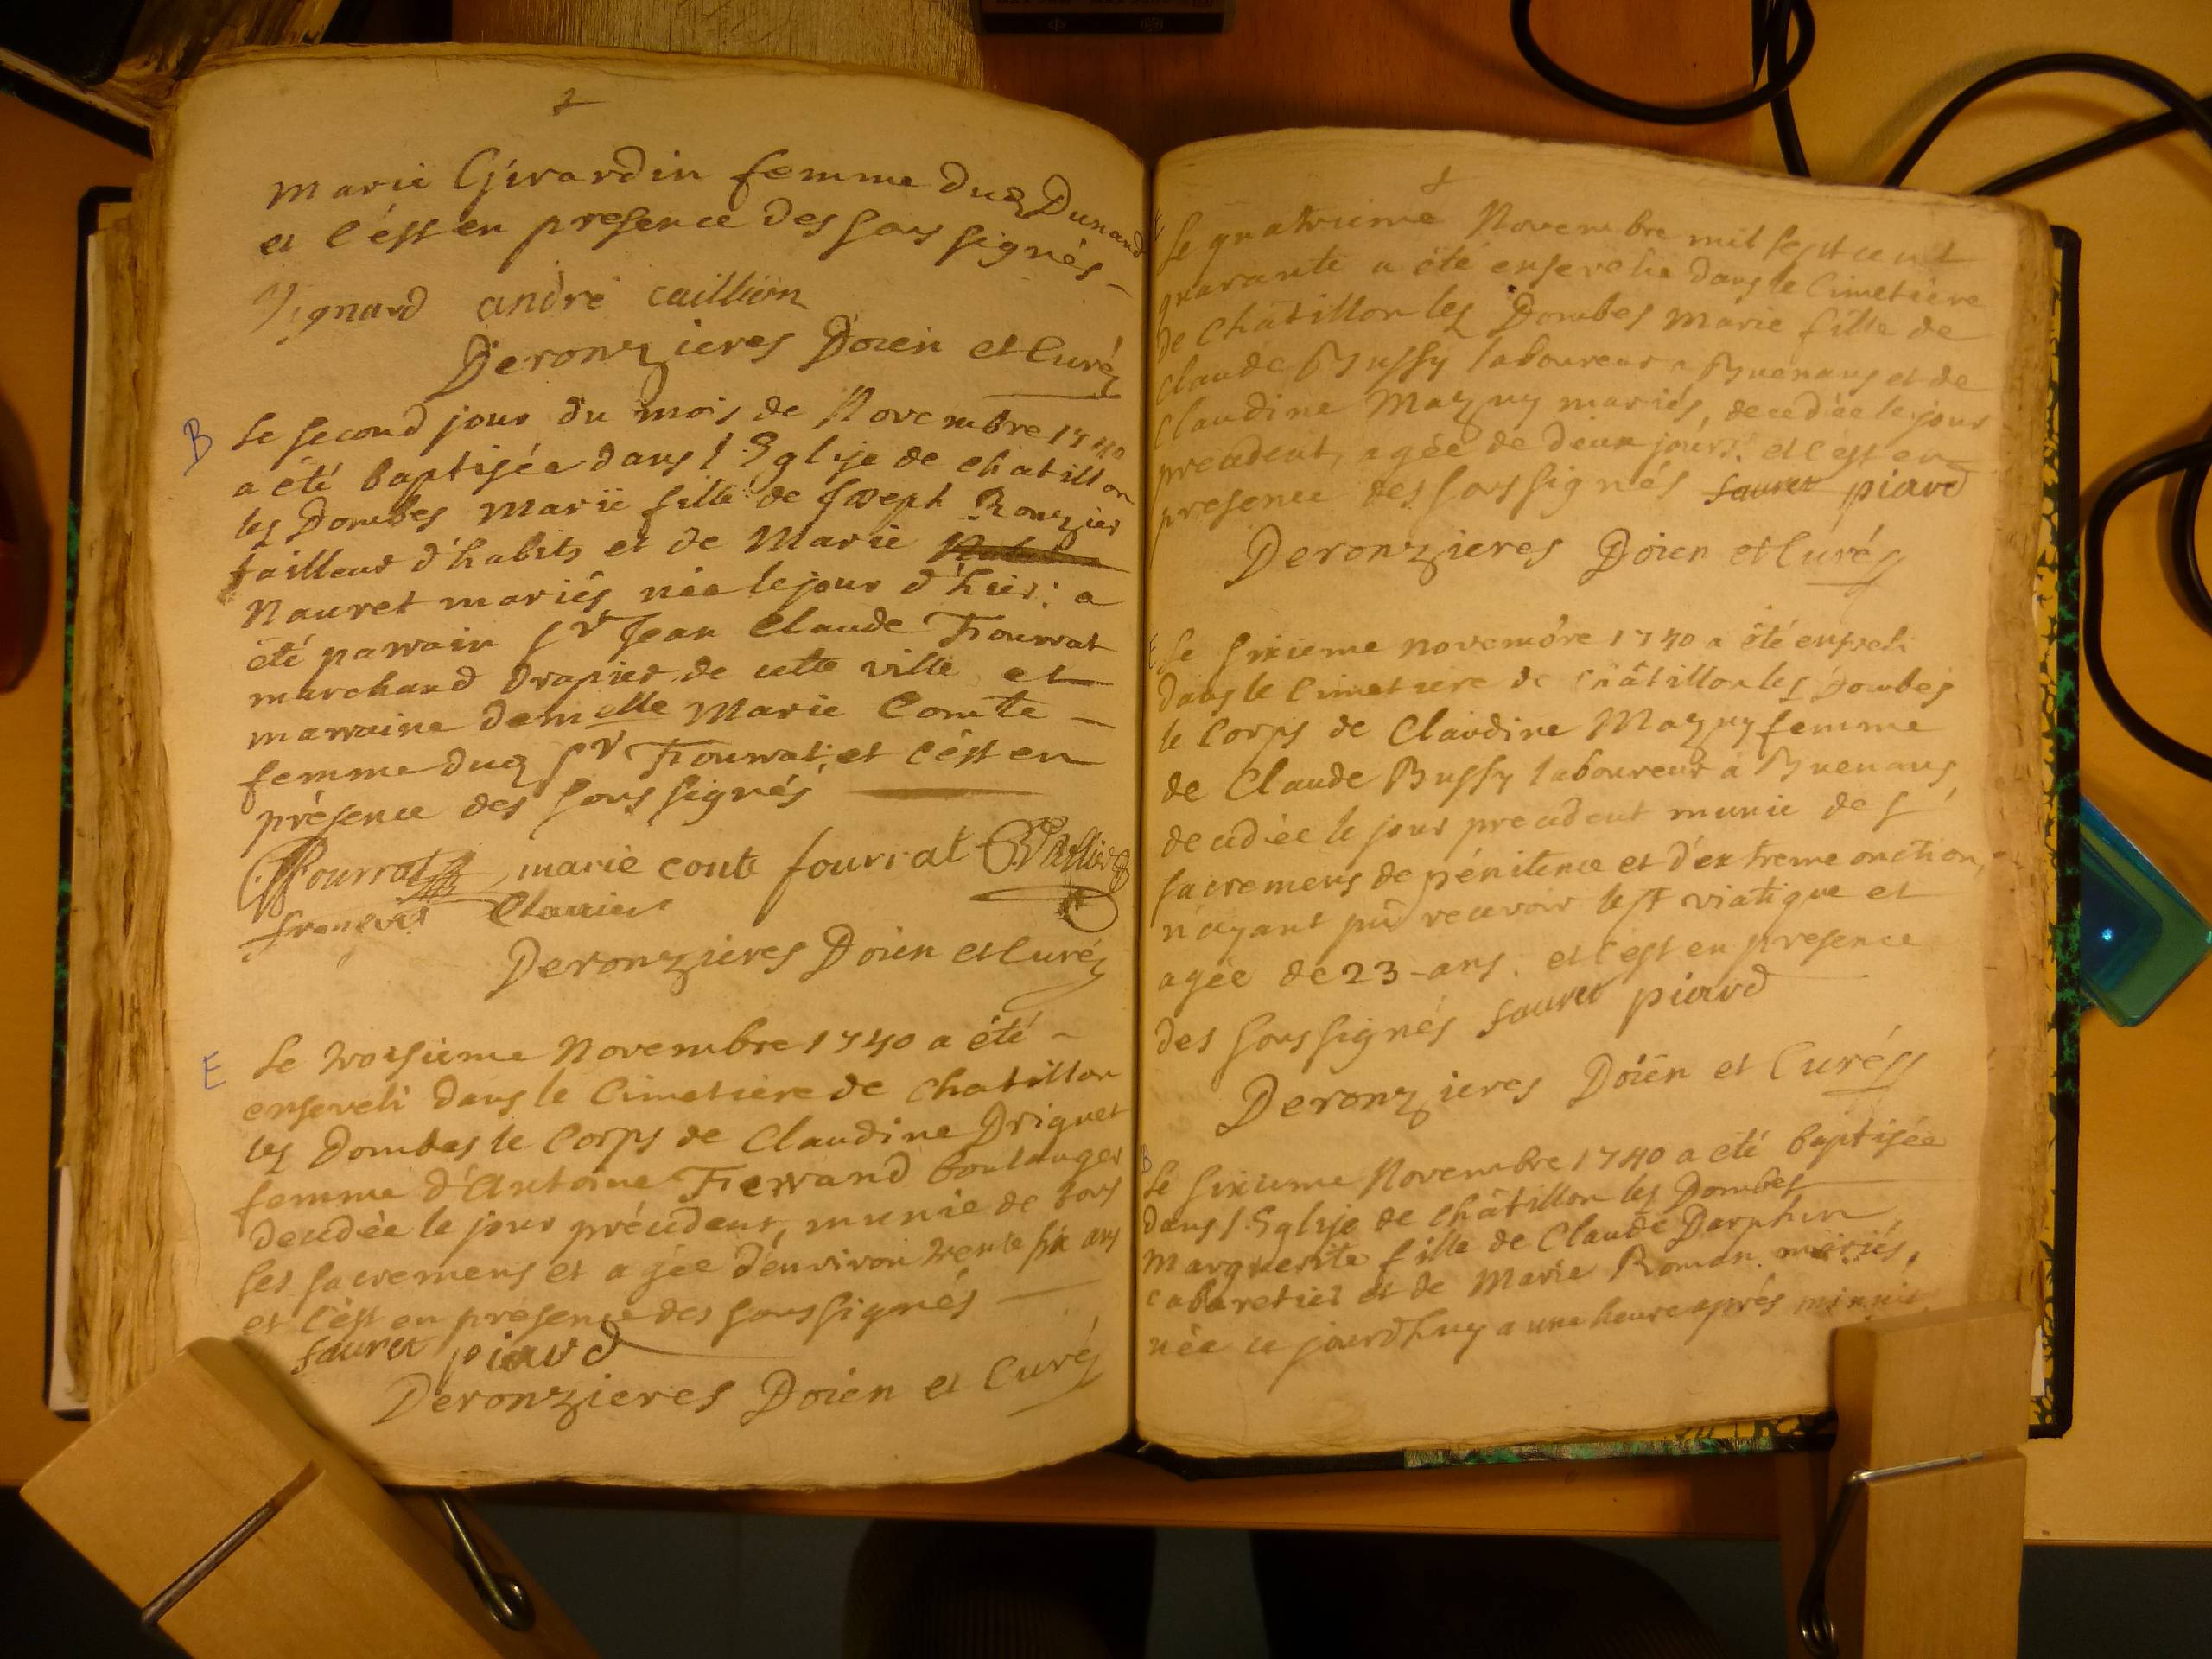 marie Girardin femme duq Dunand
et c'est en presence des sous signés
Vignard andré caillion
Deronzieres Doien et Curé
B
Le second jour du mois de Novembre 1740
a été baptisée dans l'Eglise de chatillon
les Dombes Marie fille de Joseph Ronzier
tailleur d'habits et de Marie
Nauret mariés née le jour d'hier: a
été parrain Sr Jean Claude Fourrat
marchand drapier de cette ville et
marraine demelle Marie Comte
femme duq Sr Fourrat, et c'est en
présence des sous signés
Fourrat marie conte fourrat
francois
Deronzieres Doien et Curé
E
Le troisieme Novembre 1740 a été
enseveli dans le Cimetiere de Chatillon
les Dombes le Corps de Claudine Driguet
femme d'Antoine Ferrand boulanger
decedée le jour précedent, munie de tous
ses sacremens et agée d'environ trente six ans
et c'est en presence des soussignés
sauret piard
Deronzieres Doien et Curé
Le quatrieme Novembre mil sept cent
quarante a été ensevelie dans le Cimetiere
de Châtillon les Dombes Marie fille de
Claude Bussy laboureur a Buenans et de
Claudine Mazuy mariés, decedée le jour
precedent, agée de deux jours: et c'est en
presence des sous signés sauret piard
Deronzieres Doien et Curé
E
Le sixieme novembre 1740 a été enseveli
dans le Cimetiere de Châtillon les Dombes
le Corps de Claudine Mazuy femme
de Claude Bussy laboureur a Buenans,
decedée le jour precedent munie des
sacremens de pénitence et d'extreme onction,
n'ayant pû recevoir le St viatique et
agée de 23 ans. et c'est en presence
des sous signés sauret piard
Deronzieres Doïen et Curé
B
Le sixieme Novembre 1740 a été baptisée
dans l'Eglise de Châtillon les Dombes
Marguerite fille de Claude Darphin
cabaretier et de Marie Roman mariés,
née ce jourdhuy a une heure aprés minuit